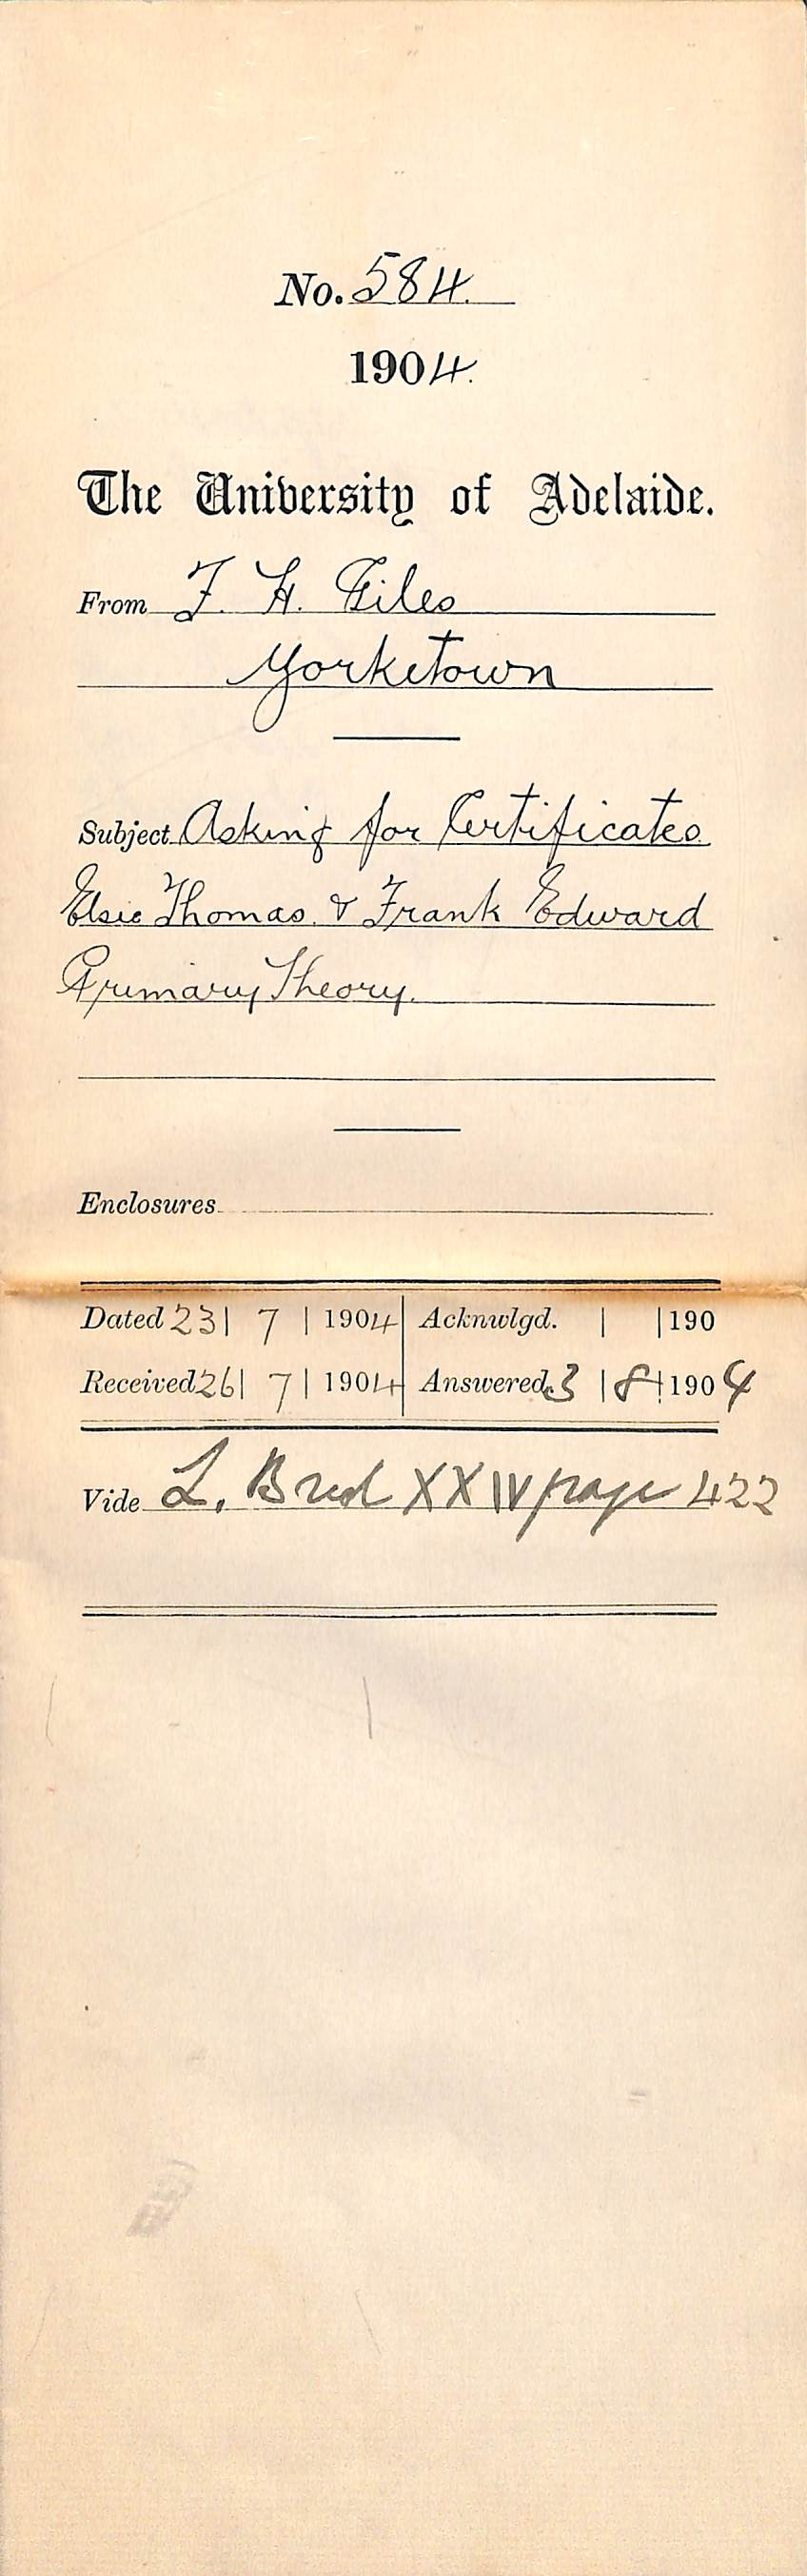 No. 584.
1904.
The University of Adelaide.
From F. H. Giles
Yorketown
Subject Asking for Certificates.
Elsie Thomas. & Frank Edward
Primary Theory.
Enclosures
Dated 23 | 7 | 1904 Acknwlgd. | | 190
Received 26 | 7 | 1904 Answered 3 | 8 | 1904
Vide L. XXIV page 422